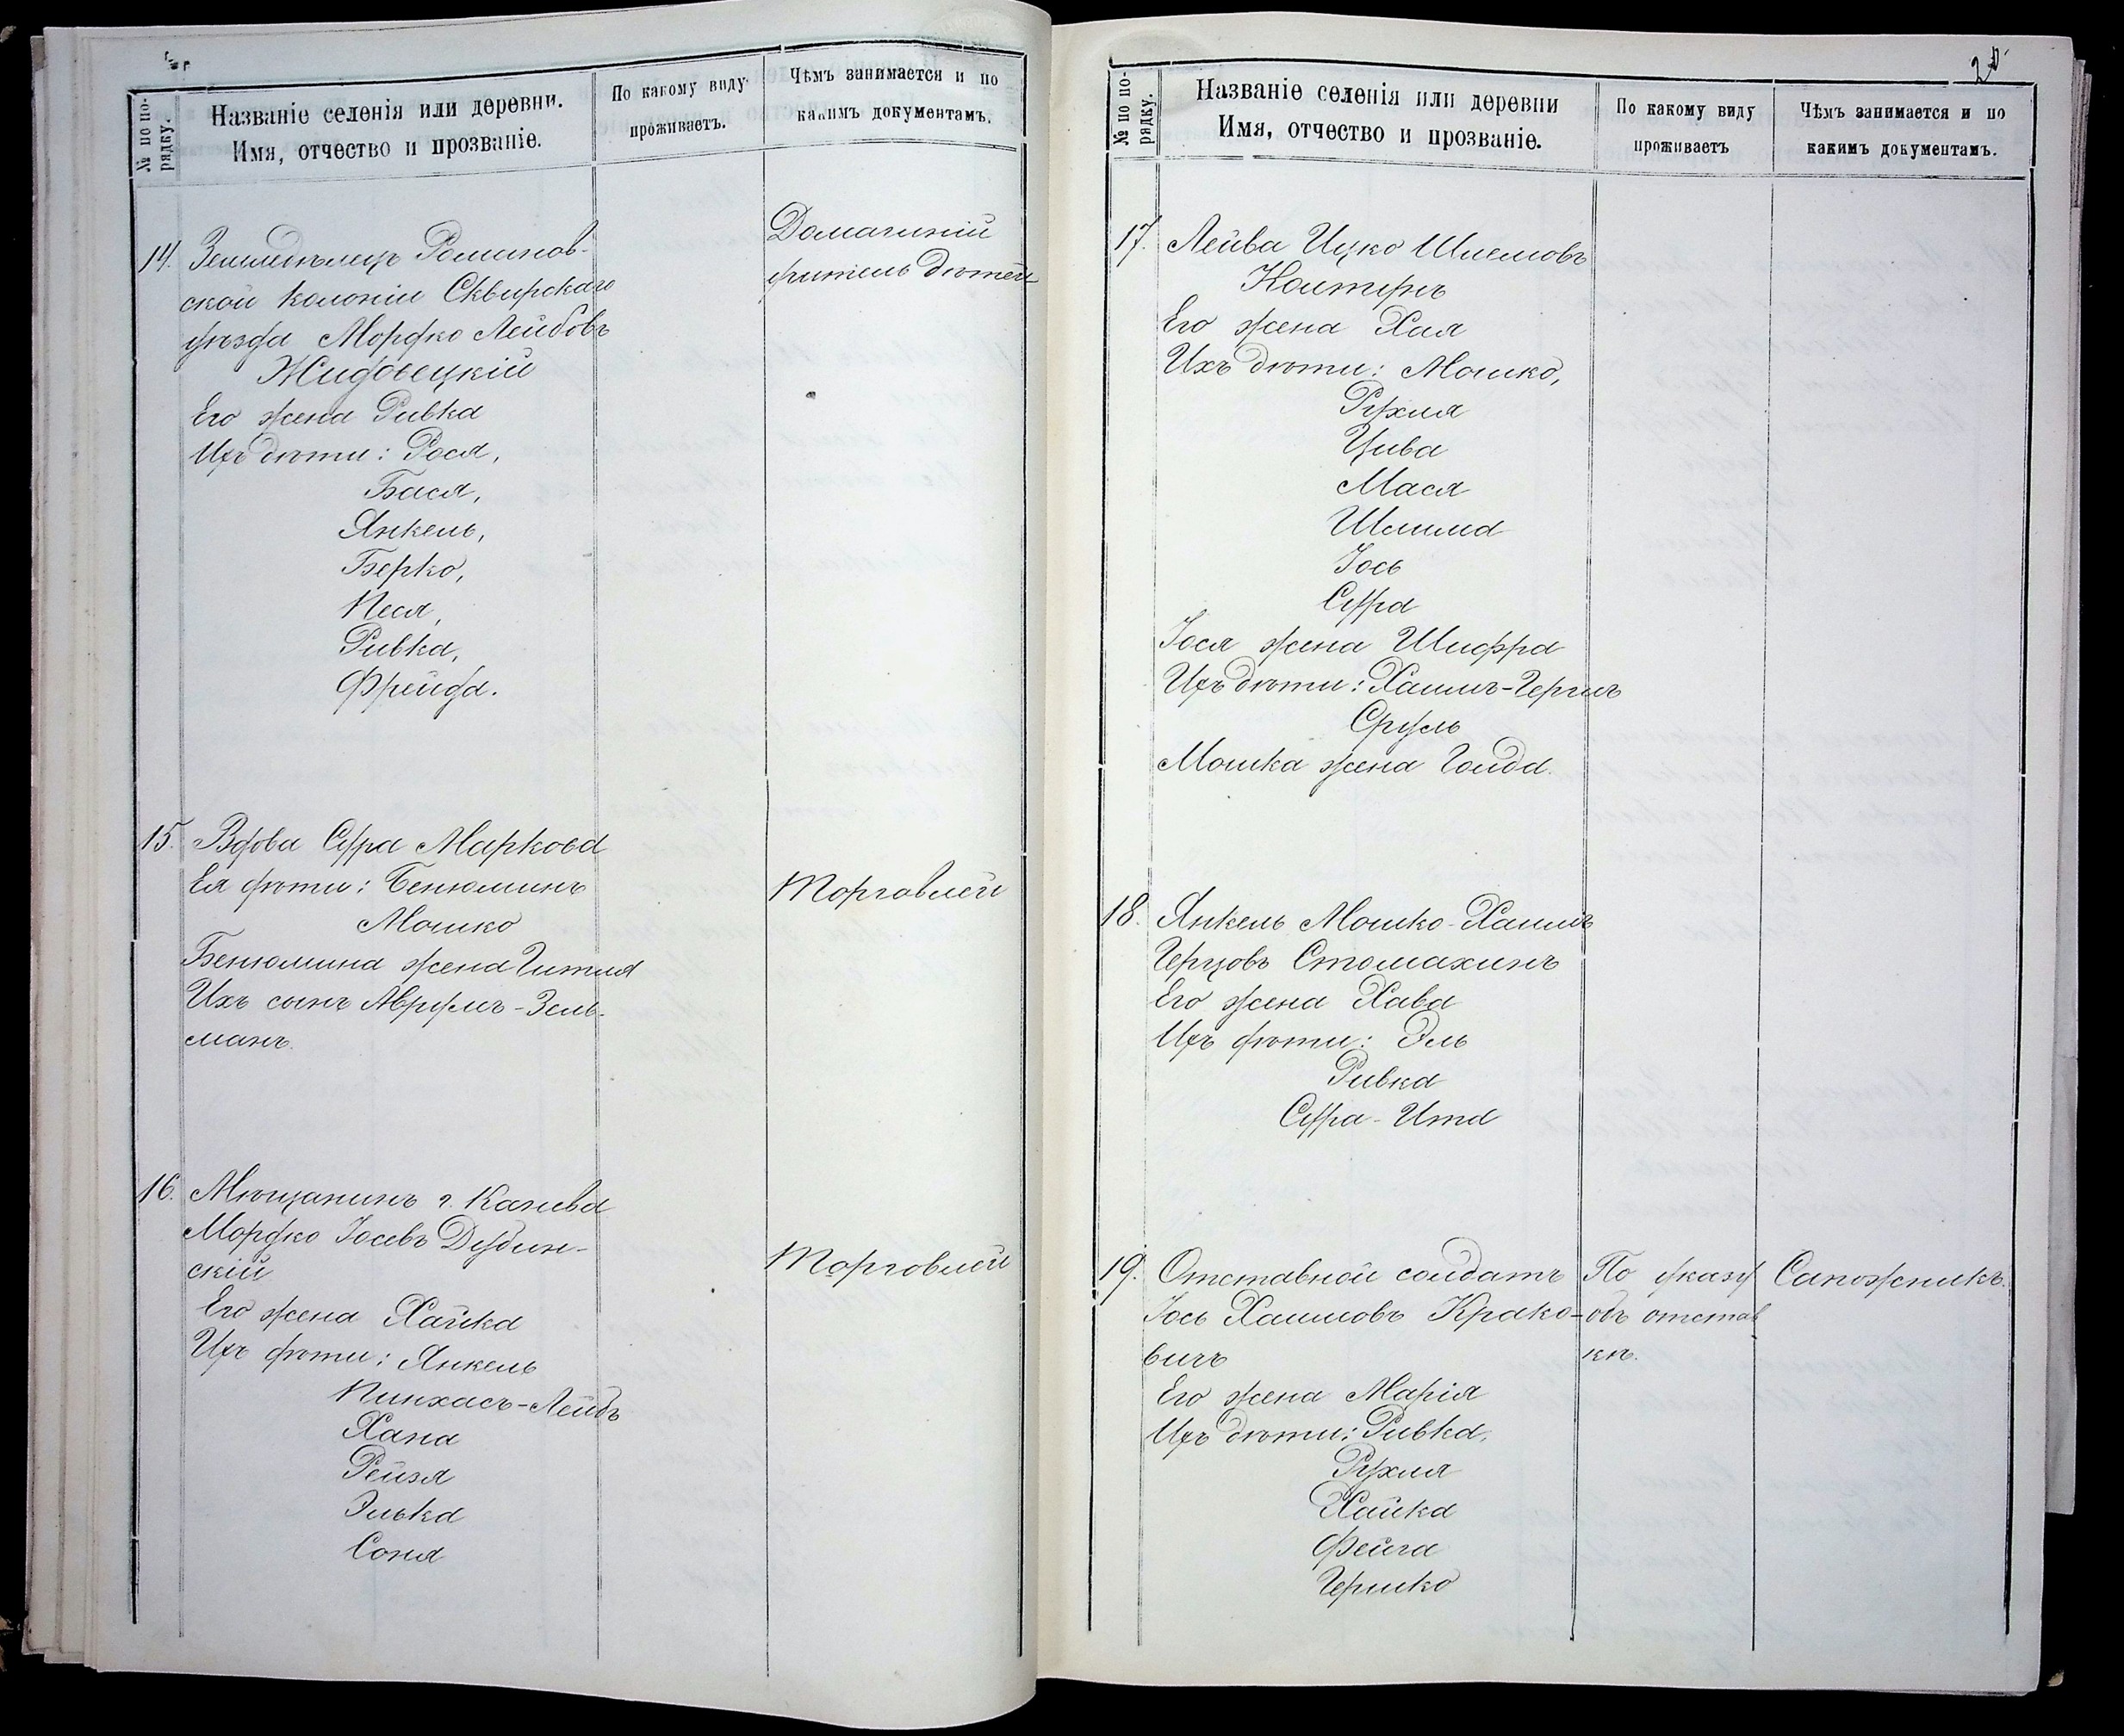 № по по-
рядку.
Названіе селенія или деревни.
Имя, отчество и прозваніе.
По какому виду
проживаетъ.
Чѣмъ занимается и по
какимъ документамъ.
14. Земледѣлецъ Романов-
ской колоніи Сквирскаго
уѣзда Мордко Лейбовъ
Жидовецкій
Его жена Ривка
Ихъ дѣти: Рося,
Бася,
Янкель,
Берко,
Песя,
Ривка,
Фрейда.
Домашній
учитель дѣтей
15. Вдова Сура Маркова
Ея дѣти: Бенюминъ
Мошко
Бенюмина жена Гитля
Ихъ сынъ Аврумъ-Зель-
манъ.
Торговлей
16. Мѣщанинъ г. Канева
Мордко Іосевъ Дубин-
скій
Его жена Хайка
Ихъ дѣти: Янкель
Пинхасъ-Лейбъ
Хана
Рейзя
Элька
Соня
Торговлей
2
№ по по-
рядку.
Названіе селенія или деревни
Имя, отчество и прозваніе.
По какому виду
проживаетъ
Чѣмъ занимается и по
какимъ документамъ.
17. Лейба Ицко Шлемовъ
Его жена Хая
Ихъ дѣти: Мошко,
Рухля
Цива
Мася
Шлима
Іось
Сура
Іося жена Шифра
Ихъ дѣти: Хаимъ-Гершъ
Сруль
Мошка жена Голда.
18. Янкель Мошко-Хаимъ
Герцовъ Стомахинъ
Его жена Хава
Ихъ дѣти: Эль
Ривка
Сура-Ита
19. Отставной солдатъ
Іось Хаимовъ Крако-
вичъ
Его жена Марія
Ихъ дѣти: Ривка,
Рухля
Хайка
Фейга
Гершко
По указу
объ отстав
кѣ.
Сапожникъ.